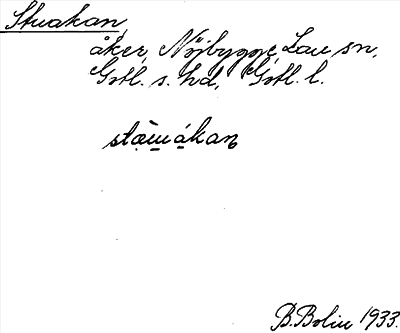 Stuakan,
åker, Nöjbygge, Lau sn,
Gotl. s. hd, Gotl. l.
B. Bolin 1933.